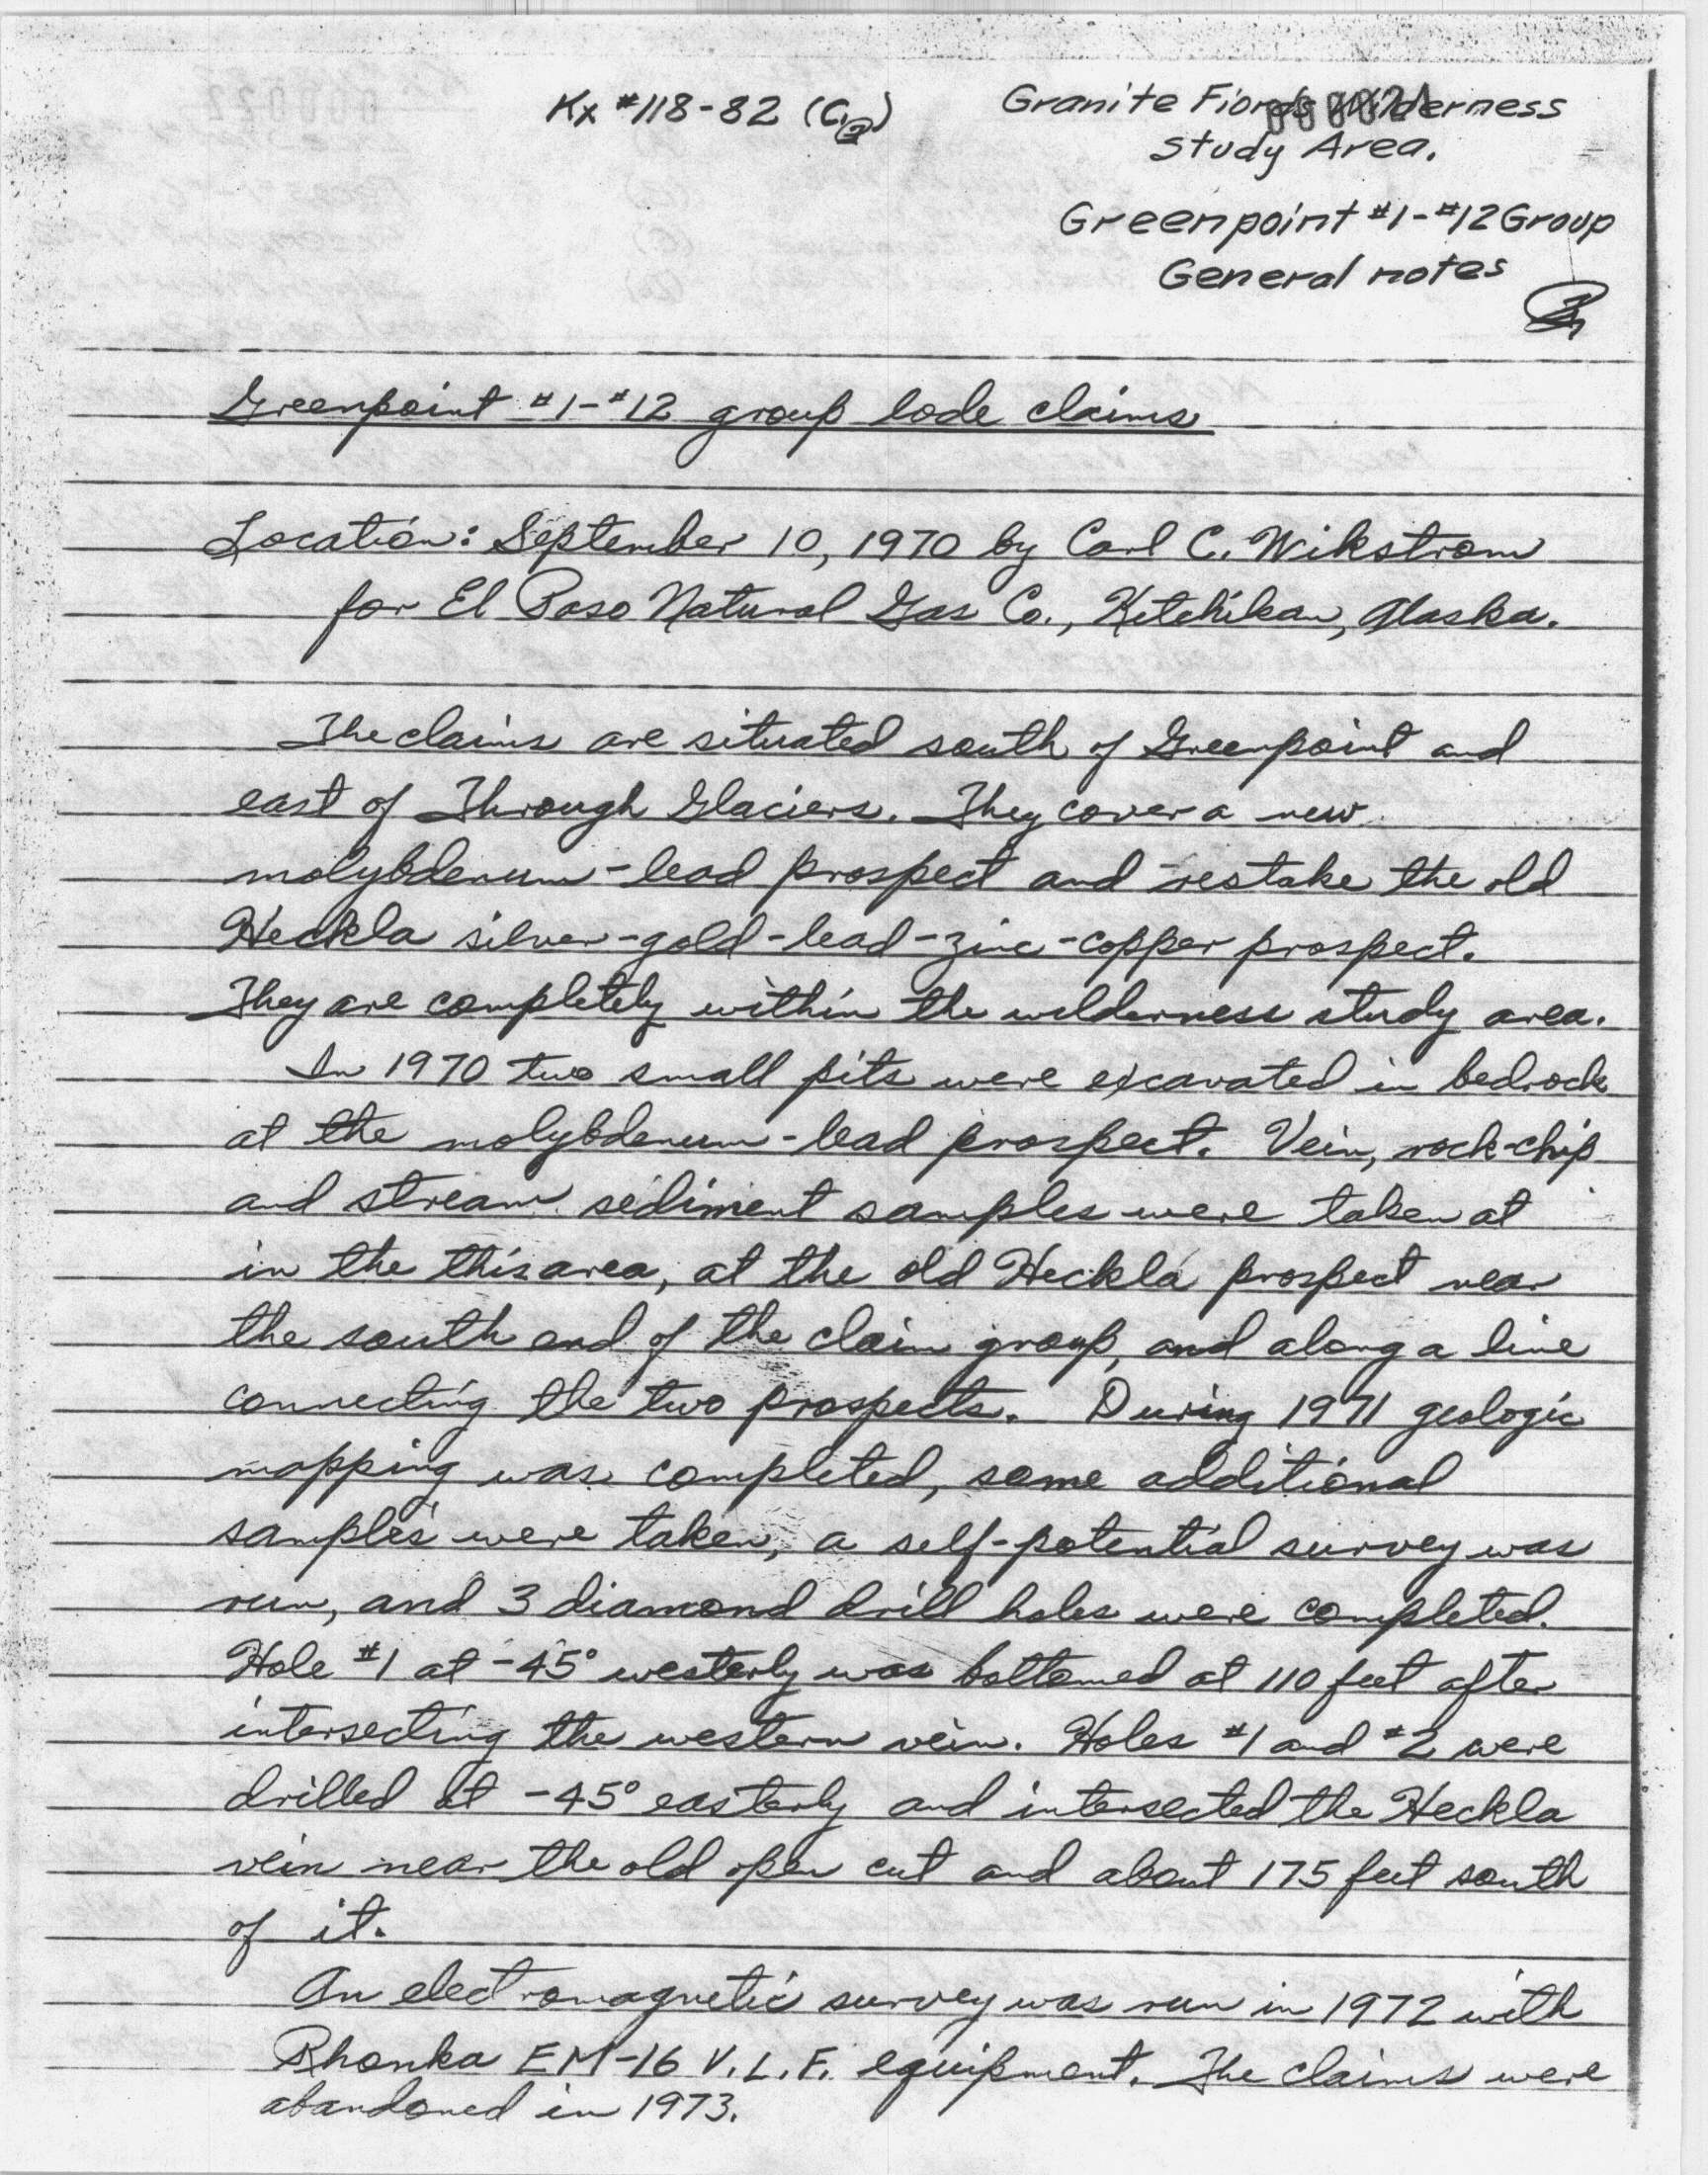 Kx #118-82 (C.2)
Granite Fiords Wilderness
Study Area.
Greenpoint #1-#12 Group
General notes
Greenpoint #1-#12 group lode claims
Location: September 10, 1970 by Carl C. Wikstrom
for El Paso Natural Gas Co., Ketchikan, Alaska.
The claims are situated south of Greenpoint and
east of Through Glaciers. They cover a new
molybdenum-lead prospect and restake the old
Heckla silver-gold-lead-zinc-copper prospect.
They are completely within the wilderness study area.
In 1970 two small pits were excavated in bedrock
at the molybdenum-lead prospect. Vein, rock-chip
and stream sediment samples were taken at
in the this area, at the old Heckla prospect near
the south end of the claim group, and along a line
connecting the two prospects. During 1971 geologic
mapping was completed, some additional
samples were taken, a self-potential survey was
run, and 3 diamond drill holes were completed.
Hole #1 at -45° westerly was bottomed at 110 feet after
intersecting the western vein. Holes #1 and #2 were
drilled at -45° easterly and intersected the Heckla
vein near the old open cut and about 175 feet south
of it.
An electromagnetic survey was run in 1972 with
Rhonka EM-16 V.L.F. equipment. The claims were
abandoned in 1973.